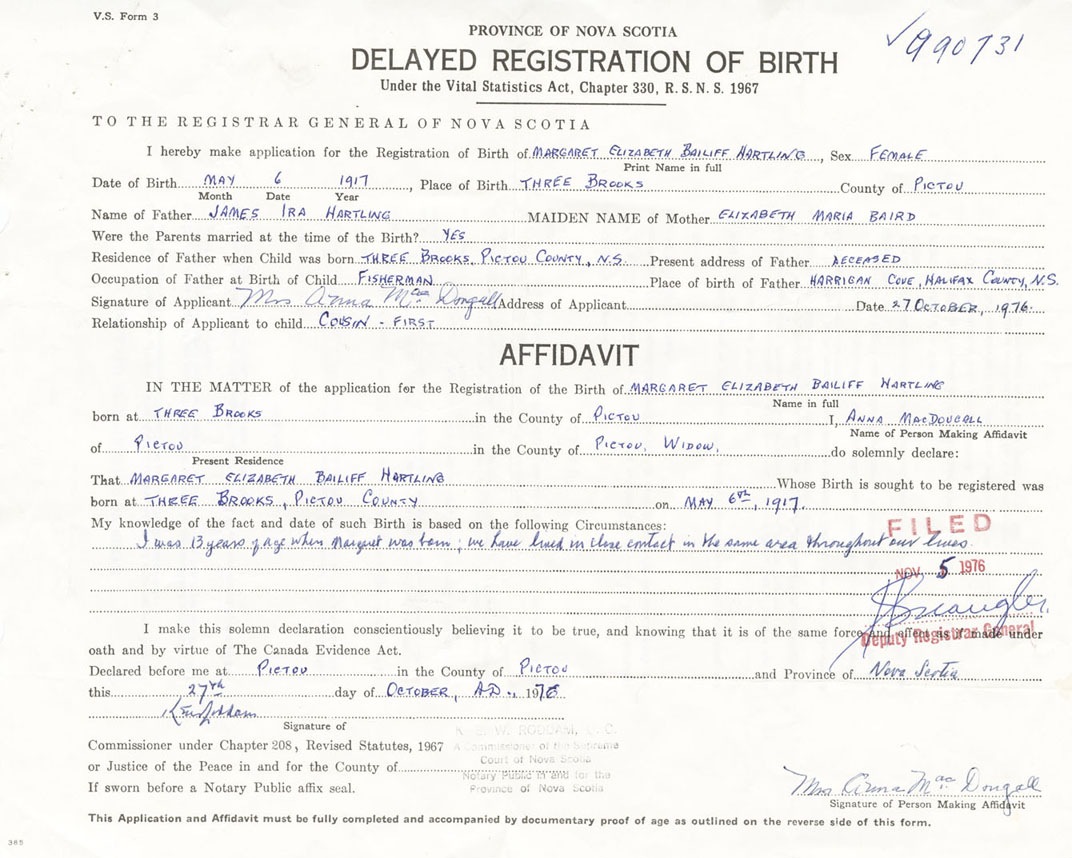 V.S. Form 3
990731
PROVINCE OF NOVA SCOTIA
DELAYED REGISTRATION OF BIRTH
Under the Vital Statistics Act, Chapter 330, R.S.N.S. 1967
TO THE REGISTRAR GENERAL OF NOVA SCOTIA
I hereby make application for the Registration of Birth of MARGARET ELIZABETH BAILIFF HARTLING, Sex FEMALE
Print Name in full
Date of Birth MAY 6 1917, Place of Birth THREE BROOKS County of PICTOU
Month Date Year
Name of Father JAMES IRA HARTLING MAIDEN NAME of Mother ELIZABETH MARIA BAIRD
Were the Parents married at the time of the Birth? YES
Residence of Father when Child was born THREE BROOKS, PICTOU COUNTY, N.S. Present address of Father DECEASED
Occupation of Father at Birth of Child FISHERMAN Place of birth of Father HARRIGAN COVE, HALIFAX COUNTY, N.S.
Signature of Applicant Mrs Anna MacDongall Address of Applicant Date 27 OCTOBER, 1976.
Relationship of Applicant to child COUSIN - FIRST
AFFIDAVIT
IN THE MATTER of the application for the Registration of the Birth of MARGARET ELIZABETH BAILIFF HARTLING
Name in full
born at THREE BROOKS in the County of PICTOU I, ANNA MACDOUGALL
Name of Person Making Affidavit
of PICTOU in the County of PICTOU, WIDOW, do solemnly declare:
Present Residence
That MARGARET ELIZABETH BAILIFF HARTLING Whose Birth is sought to be registered was
born at THREE BROOKS, PICTOU COUNTY on MAY 6th, 1917.
My knowledge of the fact and date of such Birth is based on the following Circumstances:
I was 13 years of age when Margret was born; we have lived in close contact in the same area throughout our lives.
FILED
NOV. 5 1976
Deputy Registrar General
I make this solemn declaration conscientiously believing it to be true, and knowing that it is of the same force and effect as if made under
oath and by virtue of The Canada Evidence Act.
Declared before me at PICTOU in the County of PICTOU and Province of Nova Scotia
this 27th day of OCTOBER, A.D., 1976
Signature of
W. RODDAM, Q.C.
Commissioner under Chapter 208, Revised Statutes, 1967
A Commissioner of the Supreme
Court of Nova Scotia
or Justice of the Peace in and for the County of
Notary Public in and for the
Province of Nova Scotia
If sworn before a Notary Public affix seal.
Mrs Anna MacDongall
Signature of Person Making Affidavit
This Application and Affidavit must be fully completed and accompanied by documentary proof of age as outlined on the reverse side of this form.
385